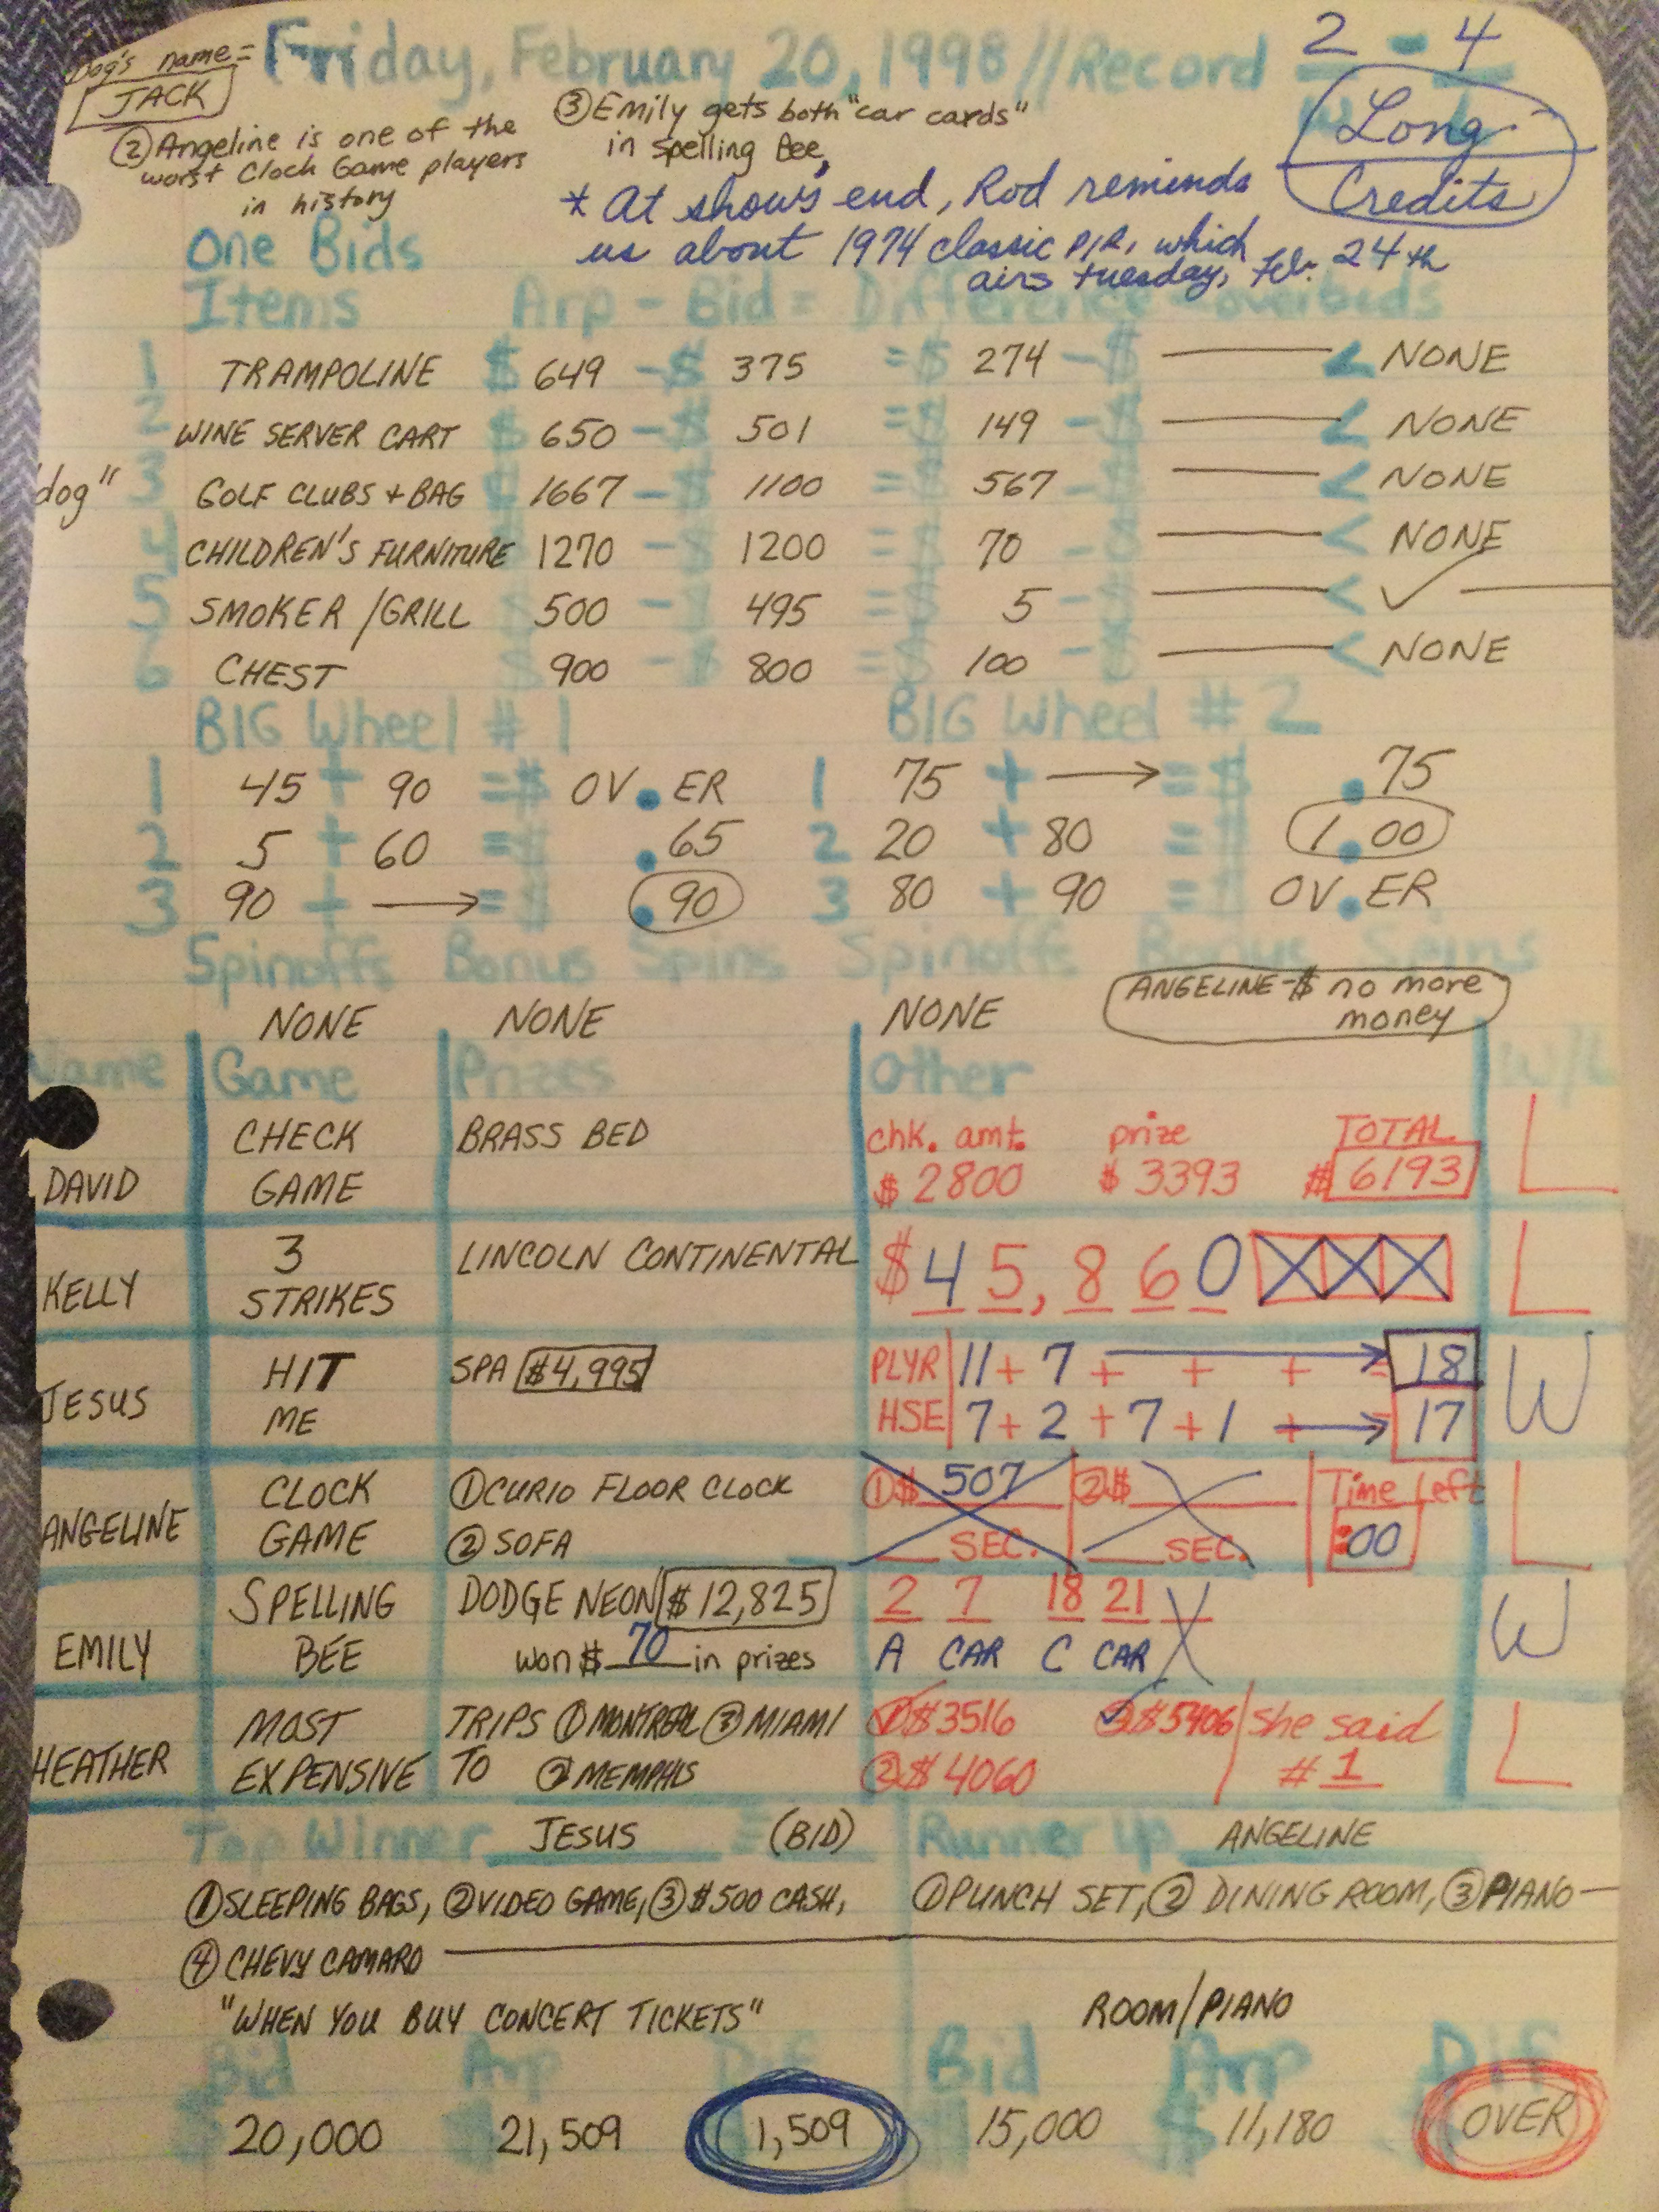 Dog's name = JACK
Friday, February 20, 1998 // Record 2 - 4
W L
② Angeline is one of the worst Clock Game players in history
③ Emily gets both "car cards" in spelling Bee,
Long Credits
* At show's end, Rod reminds us about 1974 classic PIR, which airs tuesday, Feb. 24th
One Bids
Items Arp - Bid = Difference - overbids
1 TRAMPOLINE $ 649 - $ 375 = $ 274 - $ < NONE
2 WINE SERVER CART $ 650 - $ 501 = $ 149 - $ < NONE
dog"
3 GOLF CLUBS + BAG $ 1667 - $ 1100 = $ 567 - $ < NONE
4 CHILDREN'S FURNITURE 1270 - $ 1200 = $ 70 - $ < NONE
5 SMOKER / GRILL $ 500 - $ 495 = $ 5 - $ < ✓
6 CHEST $ 900 - $ 800 = $ 100 - $ < NONE
BIG Wheel # 1 BIG Wheel # 2
1 45 + 90 = $ OV.ER 1 75 + → = $ .75
2 5 + 60 = $ .65 2 20 + 80 = $ 1.00
3 90 + → = $ .90 3 80 + 90 = $ OV.ER
Spinoffs Bonus Spins Spinoffs Bonus Spins
NONE NONE NONE ANGELINE-$ no more money
Name Game Prizes Other W/L
DAVID CHECK GAME BRASS BED chk. amt. $ 2800 prize $ 3393 TOTAL $ 6193 L
KELLY 3 STRIKES LINCOLN CONTINENTAL $ 4 5, 8 6 0 X X X L
JESUS HIT ME SPA $4,995 PLYR 11 + 7 + → + + = 18 W
HSE 7 + 2 + 7 + 1 + → 17
ANGELINE CLOCK GAME ① CURIO FLOOR CLOCK ① $ 507 SEC. ② $ SEC. Time Left :00 L
② SOFA
EMILY SPELLING BEE DODGE NEON $ 12,825 2 7 18 21 W
won $ 70 in prizes A CAR C CAR X
HEATHER MOST EXPENSIVE TRIPS TO ① MONTREAL ③ MIAMI ① $3516 ③ $5406 she said #1 L
② MEMPHIS ② $ 4060
Top Winner JESUS = (BID) Runner Up ANGELINE
① SLEEPING BAGS, ② VIDEO GAME, ③ $500 CASH, ① PUNCH SET, ② DINING ROOM, ③ PIANO
④ CHEVY CAMARO
"WHEN YOU BUY CONCERT TICKETS" ROOM/PIANO
Bid Arp Dif Bid Arp Dif
$ 20,000 21,509 1,509 15,000 $ 11,180 OVER